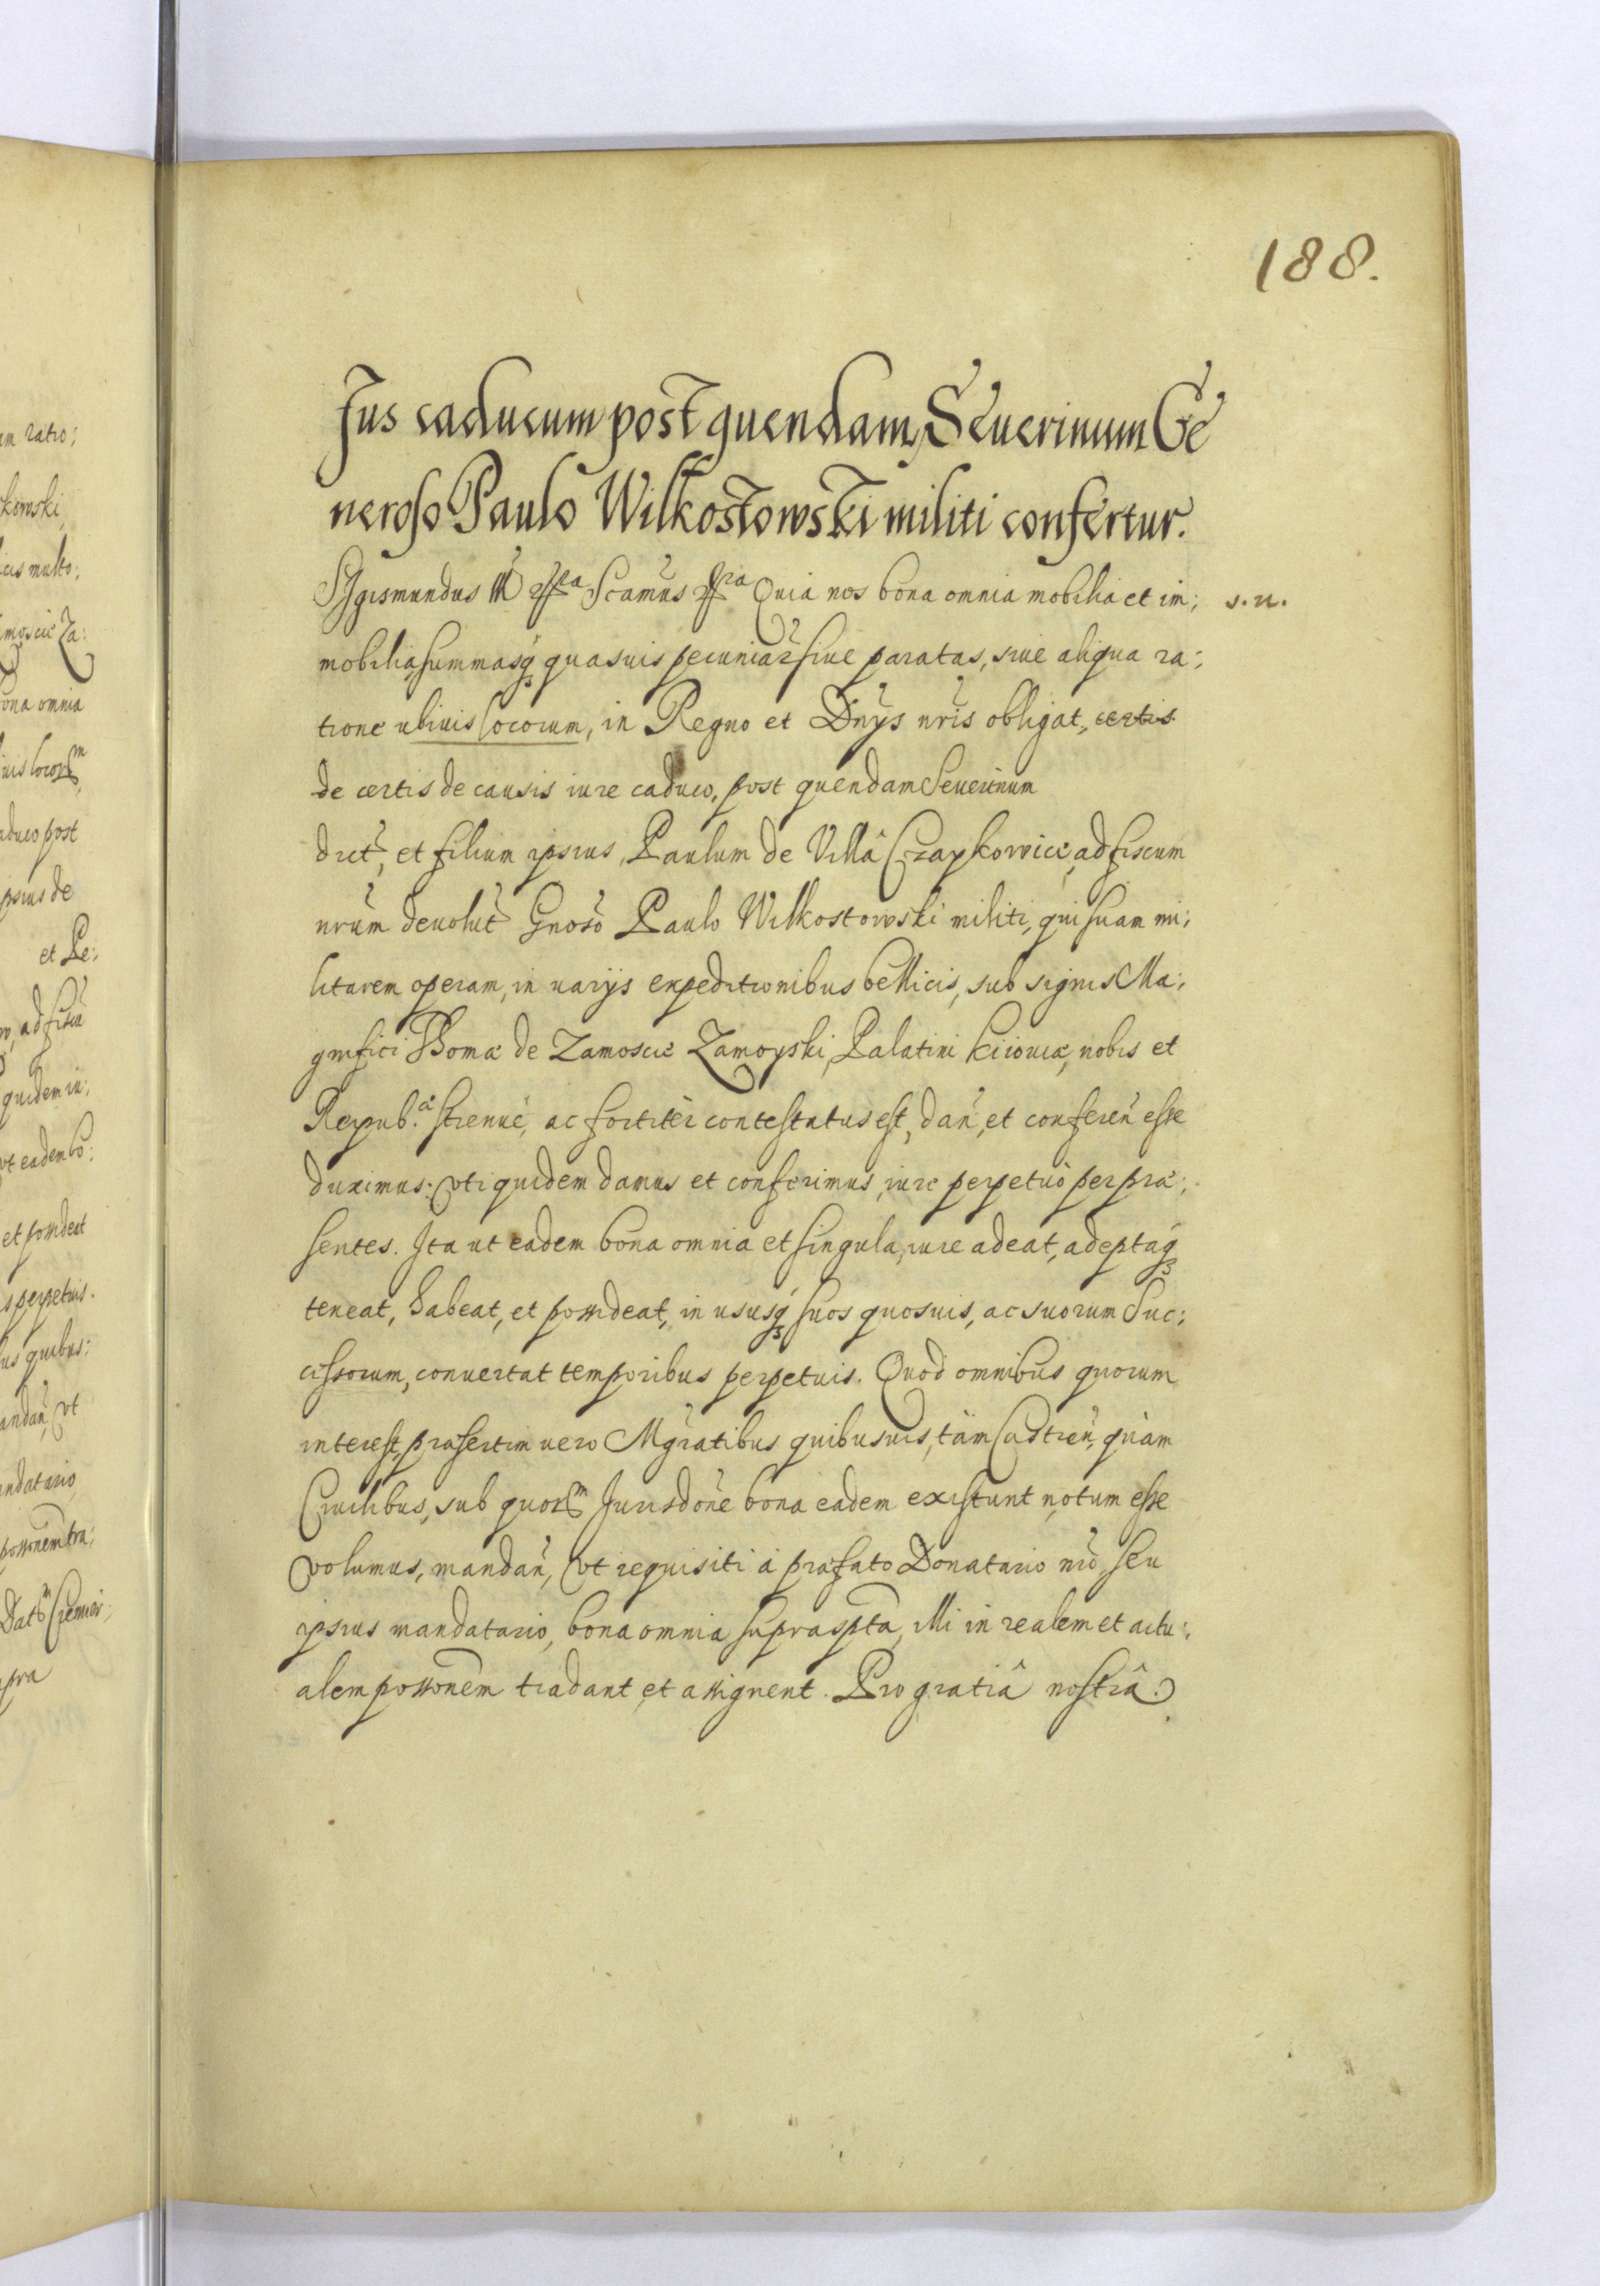 188.
Jus caducum post quendam Seuerinum Ge
neroso Paulo Wilkostowski militi confertur.
Sigismundus III Scamus Quia nos bona omnia mobilia et im; s. n.
mobilia, summasq quasuis pecuniar siue paratas, siue aliqua ra;
tione ubiuis locorum, in Regno et Dnijs nris obligat, certis
de certis de causis iure caduco, post quendam Seuerinum
dict, et filium ipsius, Paulum de Villâ Czaykowice, ad fiscum
nrum deuolut Gnoso Paulo Wilkostowski militi, qui suam mi;
litarem operam, in varijs expeditionibus bellicis, sub signis Ma;
gnifici Thomæ de Zamoscie Zamoyski, Palatini Kiiouiæ, nobis et
Reipub.cæ strenuè, ac fortitèr contestatus est, dan, et conferen esse
duximus: Vti quidem damus et conferimus, iure perpetuò per præ;
sentes. Ita ut eadem bona omnia et singula, iure adeat, adeptaq
teneat, habeat, et possideat, in ususq suos quosuis, ac suorum Suc;
cessorum, conuertat temporibus perpetuis. Quod omnibus quorum
interest, præsertim uero Mgratibus quibusuis, tàm Castren, quàm
Ciuilibus, sub quorm Jurisdone bona eadem existunt, notum esse
volumus, mandan, Vt requisiti à præfato Donatario nro, seu
ipsius mandatario, bona omnia supraspta, illi in realem et actu;
alem possonem tradant, et assignent. Pro gratiâ nostrâ.
an ratio;
kowski
cis multo;
moscie Za:
ona omnia
uis locorm
aduco post
psius de
et Pe;
ad fiscu
quidem in;
vt eadem bo;
et possideat
s perpetuis.
us quibus:
andan, Vt
andatario
possonem tra;
Datm
pra